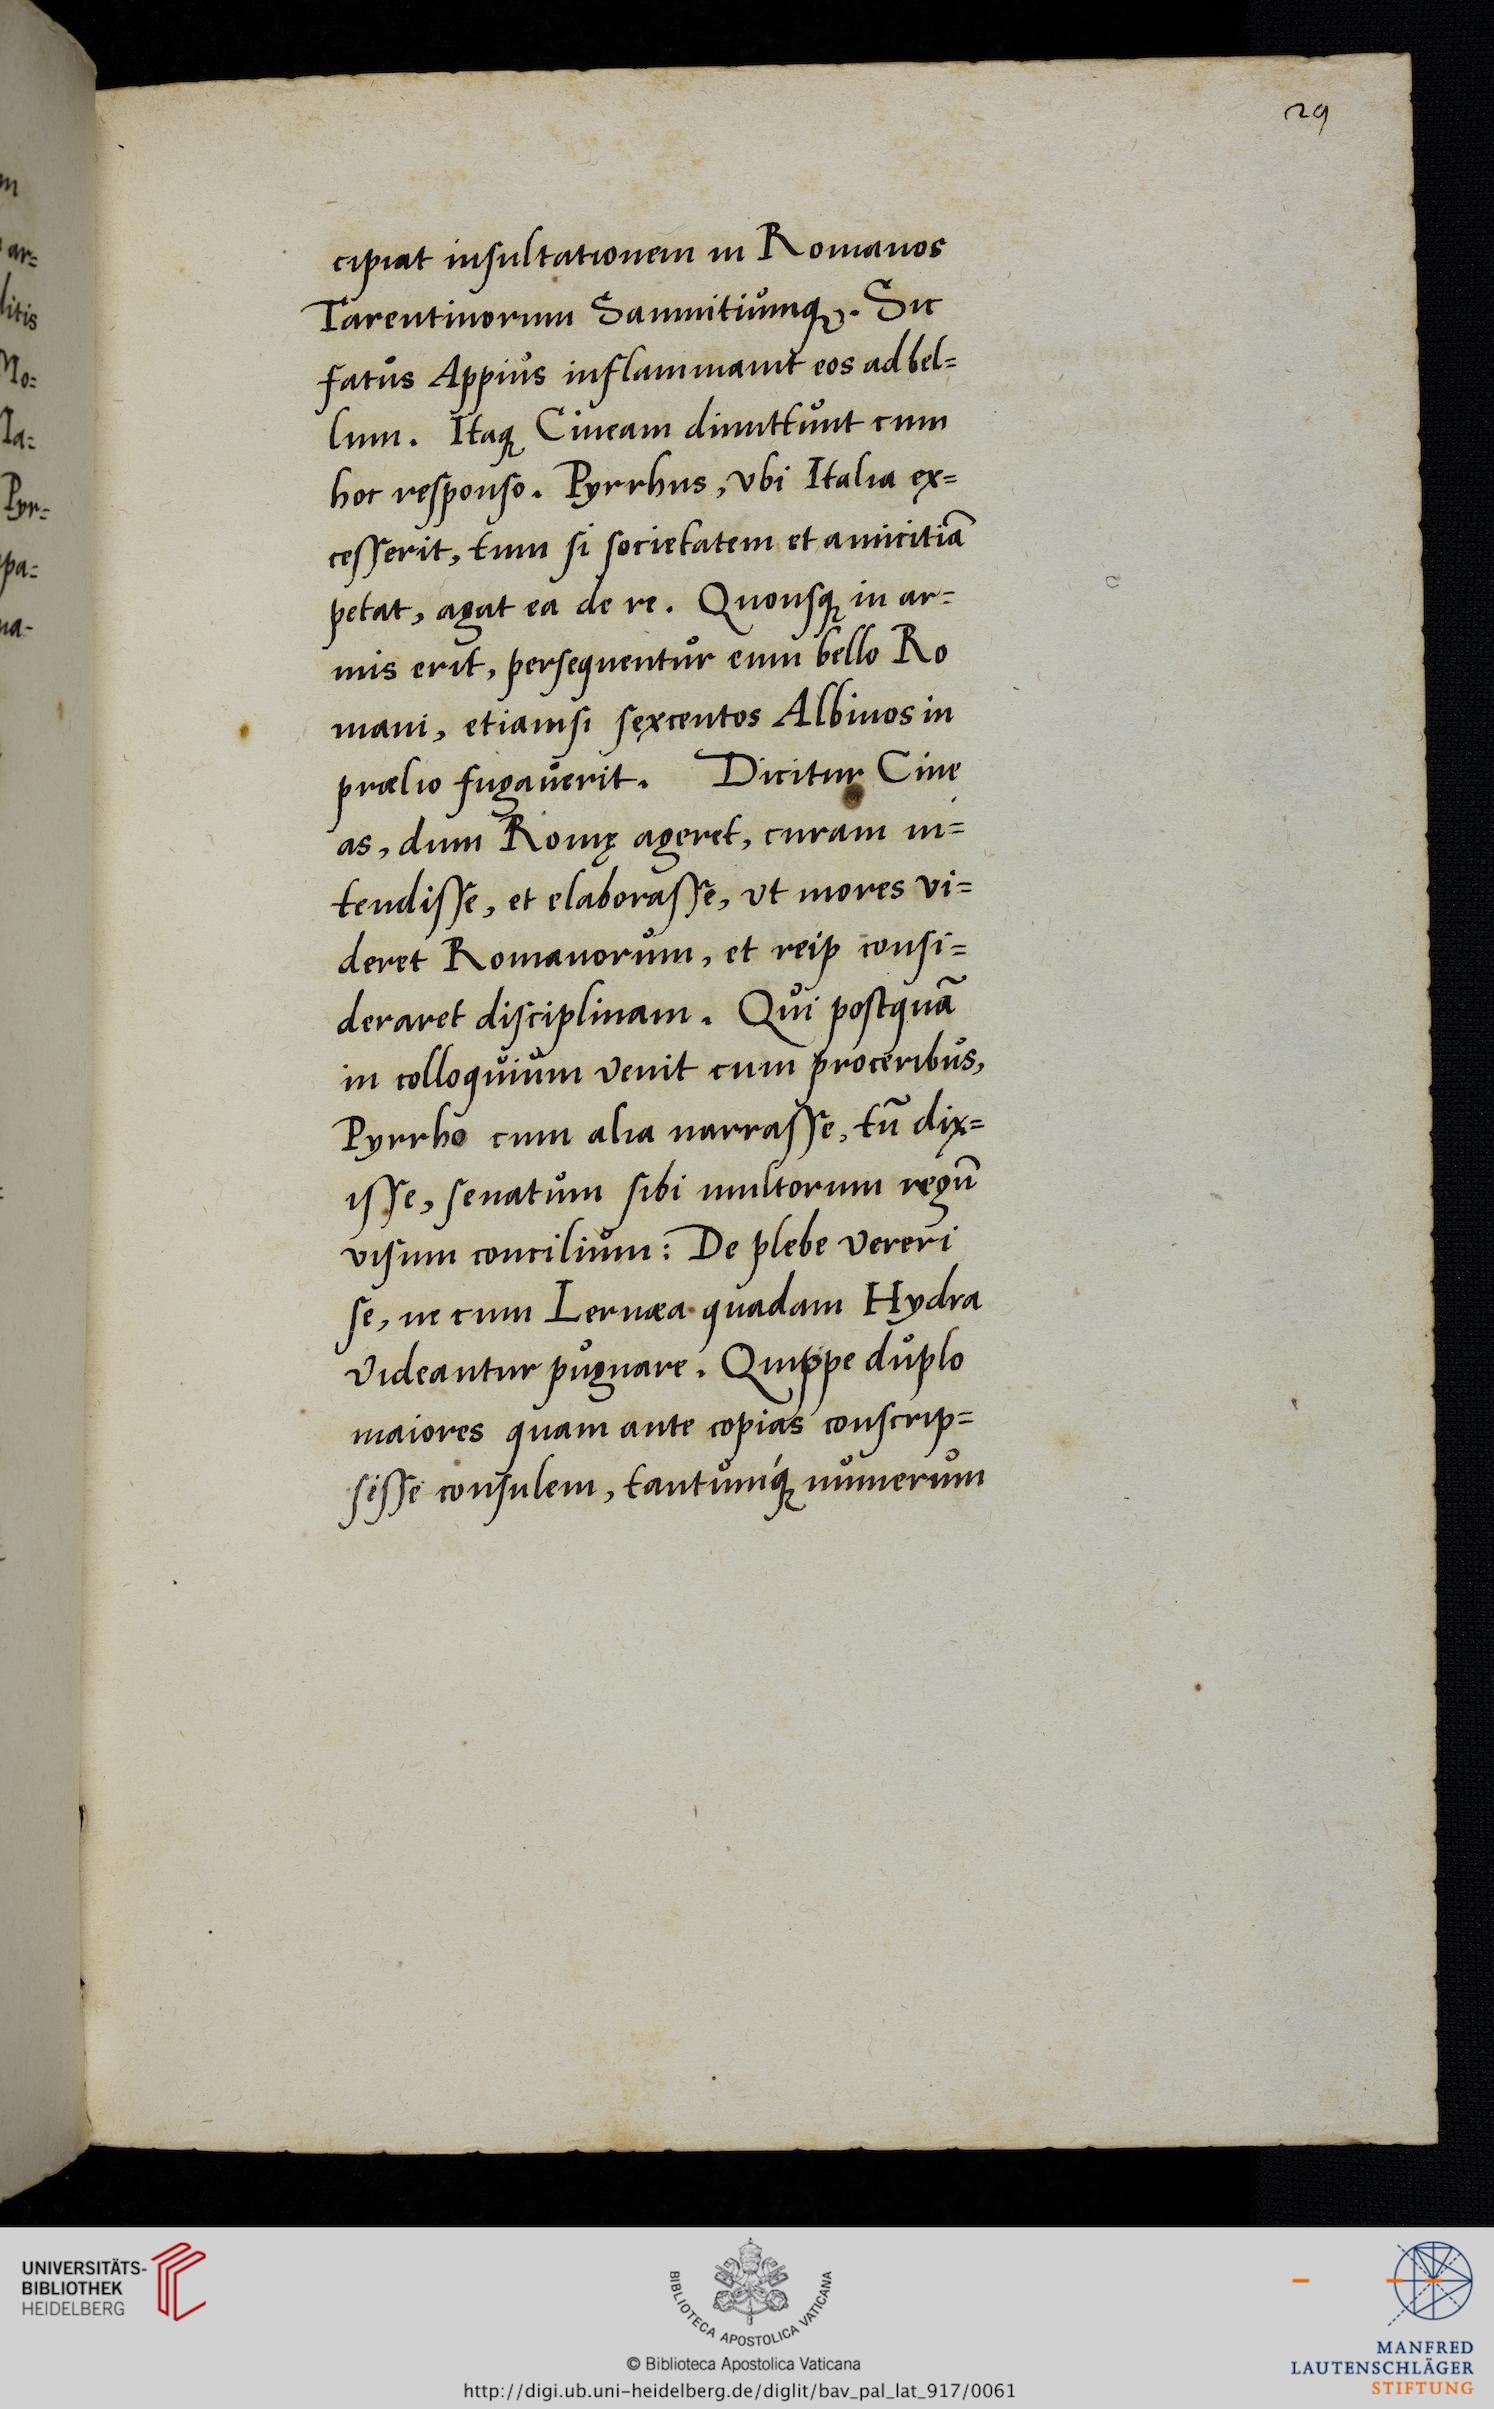 29
cipiat insultationem in Romanos
Tarentinorum Samnitiumq₃. Sic
fatus Appius inflammavit eos ad bel=
lum. Itaq₃ Cineam dimittunt cum
hoc responso. Pyrrhus, vbi Italia ex=
cesserit, tum si societatem et amicitiã
petat, agat ea de re. Quousq₃ in ar=
mis erit, persequentur eum bello Ro
mani, etiamsi sexcentos Albinos in
prælio fugaverit. Dicitur Cine
as, dum Romę ageret, curam in=
tendisse, et elaborasse, vt mores vi=
deret Romanorum, et reip consi=
deraret disciplinam. Qui postquã
in colloquium venit cum proceribus,
Pyrrho cum alia narrasse, tũ dix=
isse, senatum sibi multorum regũ
visum concilium: De plebe vereri
se, ne cum Lernæa quadam Hydra
videantur pugnare. Quippe duplo
maiores quam ante copias conscrip=
sisse consulem, tantumq́₃ numerum
m
ar=
litis
No=
Ta=
Pyr=
pa=
na-
UNIVERSITÄTS-
BIBLIOTHEK
HEIDELBERG
BIBLIOTECA APOSTOLICA VATICANA
© Biblioteca Apostolica Vaticana
http://digi.ub.uni-heidelberg.de/diglit/bav_pal_lat_917/0061
MANFRED
LAUTENSCHLÄGER
STIFTUNG